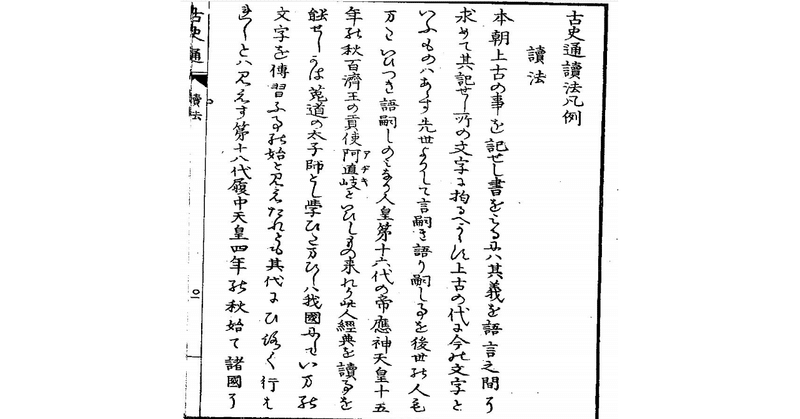 古史通讀法凡例
讀法
本朝上古の事を記せし書をみるにハ其義を語言之間に
求めて其記せし所の文字に拘るへからす上古の代に今の文字と
いふものハあらす先世よりして言嗣き語り嗣しことを後世の人も
またいひつき語嗣しのみなり人皇第十六代の帝應神天皇十五
年の秋百濟王の貢使阿直岐といひしもの来れり此人經典を讀ことを
アヂキ
能せしかは菟道の太子師とし学ひたまひしハ我國にしていまの
文字を傳習ふことの始と見えたれとも其代にひろく行は
れしとハ見えす第十八代履中天皇四年の秋始て諸國に
古史通
讀法